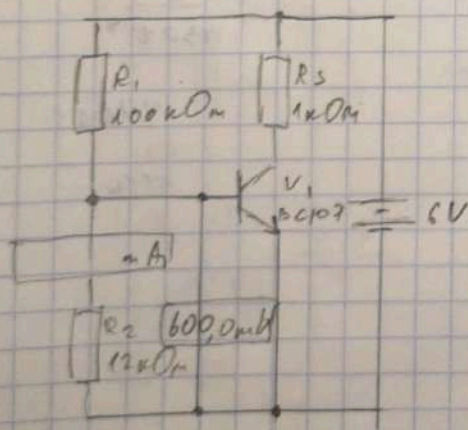 R1
100кОм
R3
1кОм
V1
BC107
6V
mA
R2
12кОм
600,0mV